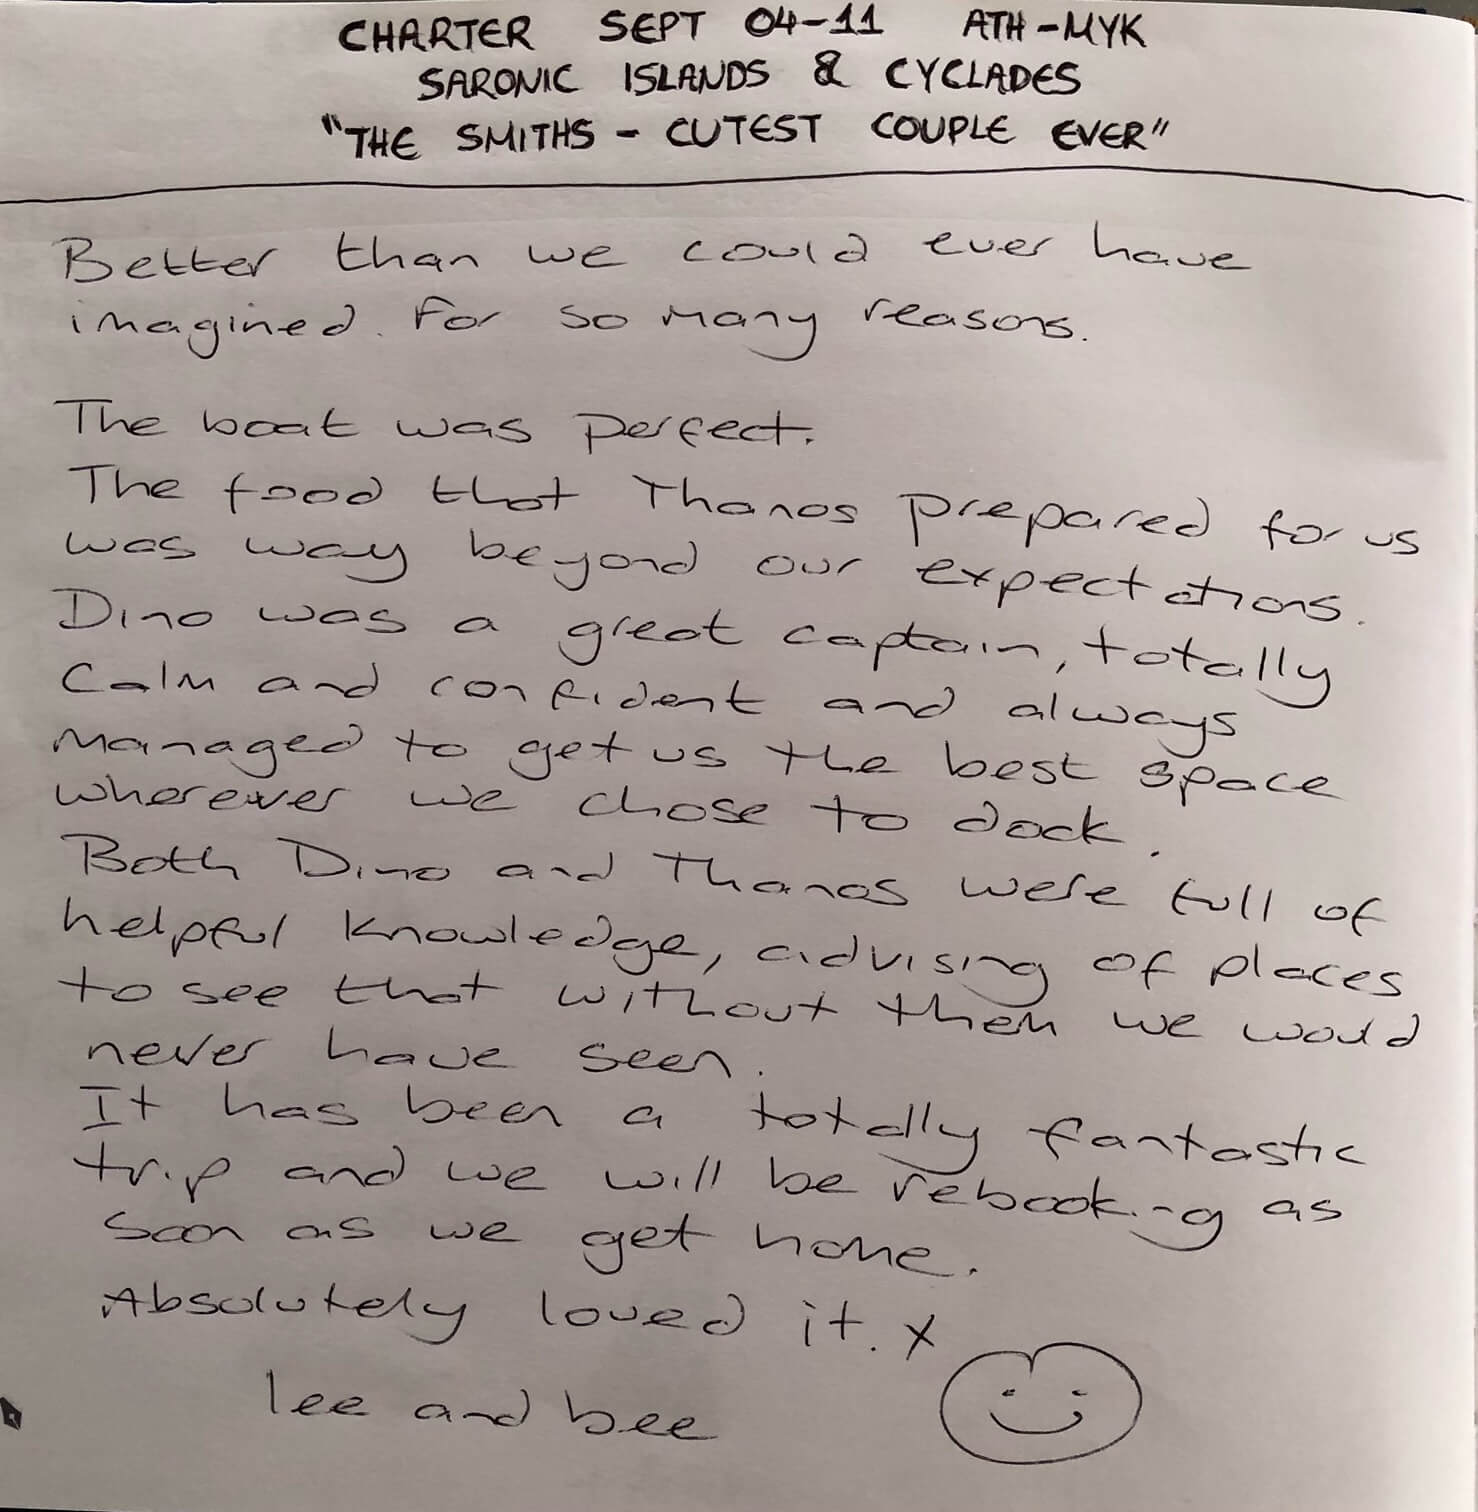 CHARTER SEPT 04-11 ATH-MYK
SARONIC ISLANDS & CYCLADES
"THE SMITHS - CUTEST COUPLE EVER"
Better than we could ever have
imagined. For so many reasons.
The boat was perfect.
The food that Thanos prepared for us
was way beyond our expectations.
Dino was a great captain, totally
calm and confident and always
managed to get us the best space
wherever we chose to dock.
Both Dino and Thanos were full of
helpful knowledge, advising of places
to see that without them we would
never have seen.
It has been a totally fantastic
trip and we will be rebooking as
soon as we get home.
Absolutely loved it. x
lee and bee